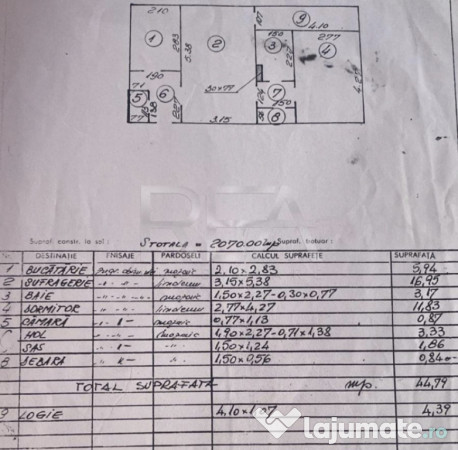 210
107
9
4.10
1
283
5.38
2
150
3
227
277
4
4.27
190
30x77
71
5
6
7
124
138
227
77
150
56
8
3.15
Supraf. constr. la sol: STOTALA = 2070.00 mp Supraf. trotuar:
Nr. DESTINAȚIE FINISAJE PARDOSELI CALCUL SUPRAFEȚE SUPRAFAȚA
1 BUCĂTĂRIE mozaic 2,10x2,83 5,94
2 SUFRAGERIE -"- -"- linoleum 3,15x5,38 16,95
3 BAIE -"- -"- mozaic 1,50x2,27-0,30x0,77 3,17
4 DORMITOR -"- linoleum 2,77x4,27 11,83
5 CĂMARA -"- mozaic 0,77x1,13 0,87
HOL -"- mozaic 1,90x2,27-0,71x1,38 3,33
SAS -"- -"- 1,50x1,24 1,86
8 DEBARA -"- -"- 1,50x0,56 0,84
TOTAL SUPRAFATA mp. 44,79
9 LOGIE 4,10x1,07 4,39
Lajumate.ro